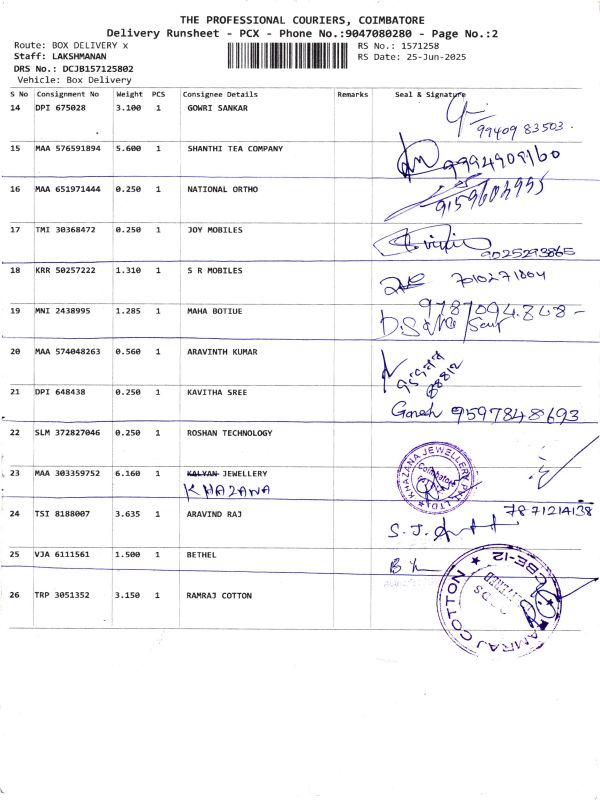 THE PROFESSIONAL COURIERS, COIMBATORE
Delivery Runsheet - PCX - Phone No.:9047080280 - Page No.:2
Route: BOX DELIVERY x RS No.: 1571258
Staff: LAKSHMANAN RS Date: 25-Jun-2025
DRS No.: DCJB157125802
Vehicle: Box Delivery
S No Consignment No Weight PCS Consignee Details Remarks Seal & Signature
14 DPI 675028 3.100 1 GOWRI SANKAR
99409 83503.
15 MAA 576591894 5.600 1 SHANTHI TEA COMPANY
9994909160
16 MAA 651971444 0.250 1 NATIONAL ORTHO
17 TMI 30368472 0.250 1 JOY MOBILES
9025293865
18 KRR 50257222 1.310 1 S R MOBILES 7010271804
19 MNI 2438995 1.285 1 MAHA BOTIUE
20 MAA 574048263 0.560 1 ARAVINTH KUMAR
21 DPI 648438 0.250 1 KAVITHA SREE
Ganesh 9597848693
22 SLM 372827046 0.250 1 ROSHAN TECHNOLOGY
23 MAA 303359752 6.160 1 KALYAN JEWELLERY
KHAZANA
KHAZANA JEWELLERY PVT LTD
Coimbatore
24 TSI 8188007 3.635 1 ARAVIND RAJ 7871214138
25 VJA 6111561 1.500 1 BETHEL
26 TRP 3051352 3.150 1 RAMRAJ COTTON
RAMRAJ COTTON CBE-12